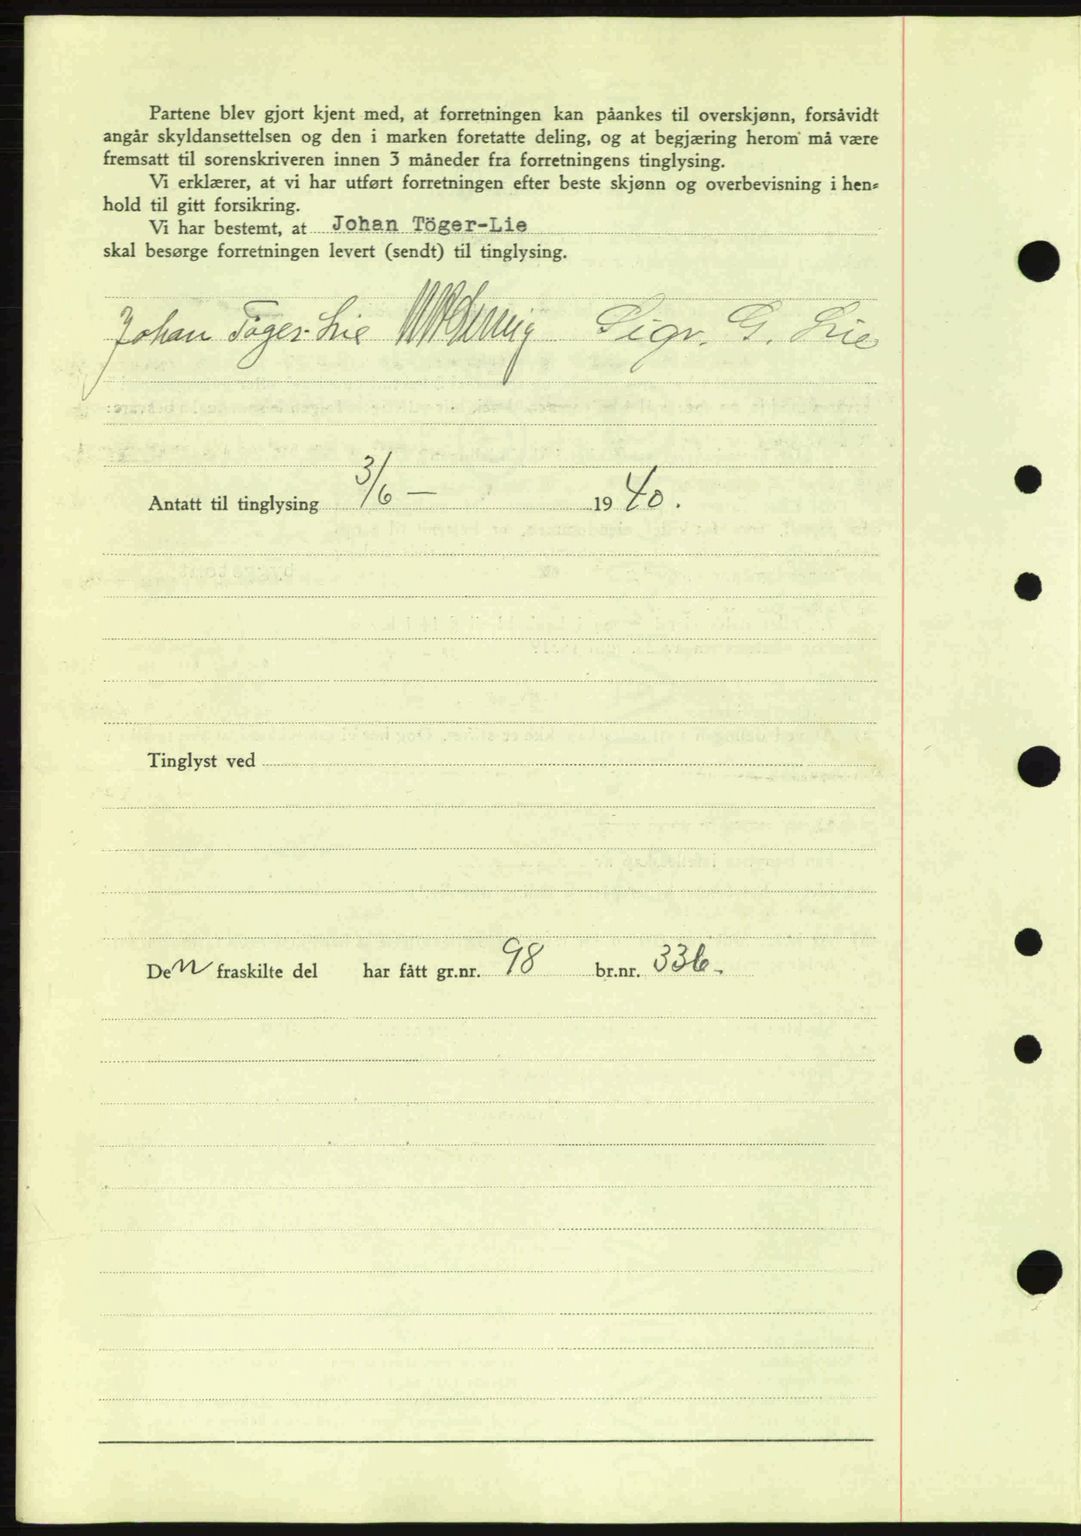 Partene blev gjort kjent med, at forretningen kan påankes til overskjønn, forsåvidt
angår skyldansettelsen og den i marken foretatte deling, og at begjæring herom må være
fremsatt til sorenskriveren innen 3 måneder fra forretningens tinglysing.
Vi erklærer, at vi har utført forretningen efter beste skjønn og overbevisning i hen-
hold til gitt forsikring.
Vi har bestemt, at Johan Töger-Lie
skal besørge forretningen levert (sendt) til tinglysing.
Johan Töger-Lie Sigv. G. Lie
Antatt til tinglysing 3/6 — 1940.
Tinglyst ved
Den fraskilte del har fått gr.nr. 98 br.nr. 336.